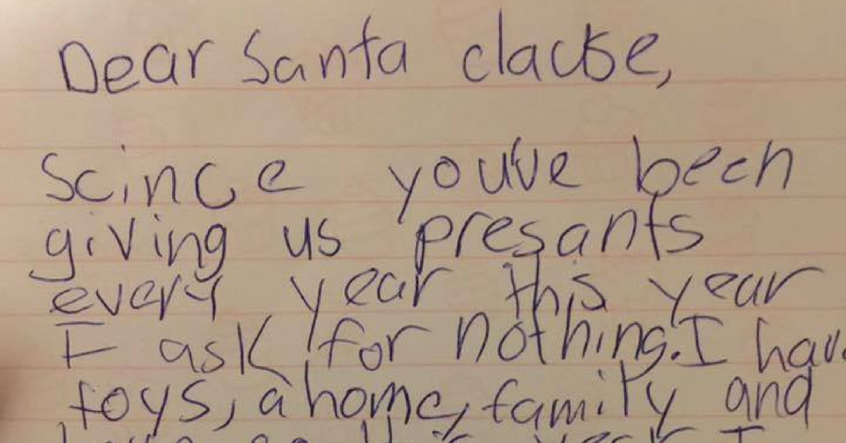 Dear Santa clause,
Scince you've been
giving us presants
every year this year
I ask for nothing. I hav
toys, a home, family and
this year I